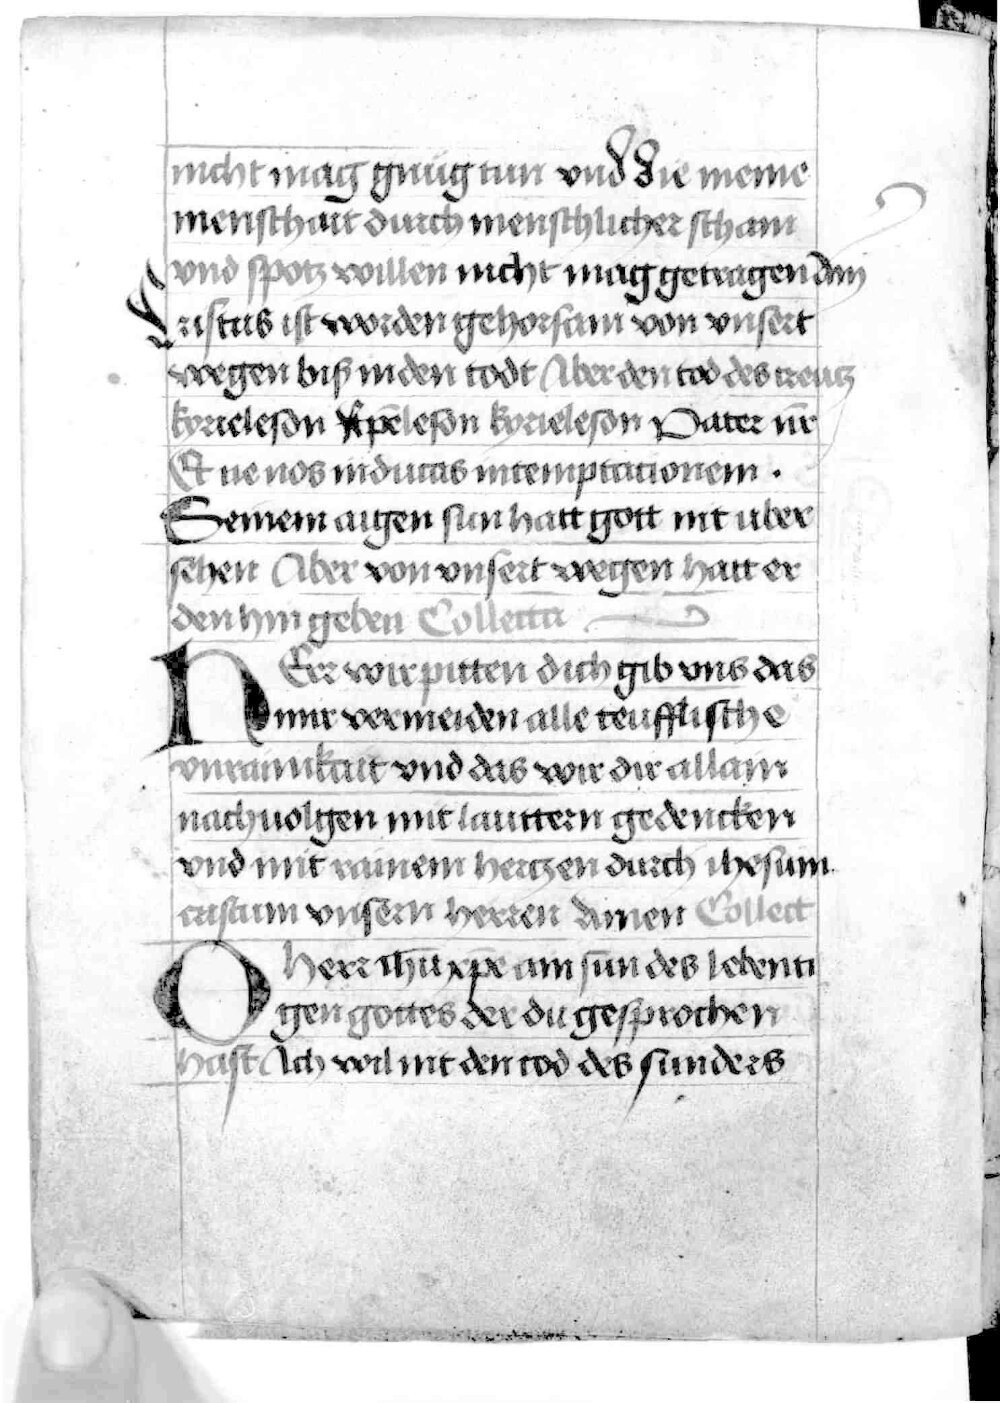 nicht mag gnüg tun vnd Die meine
menschait durch menschlicher scham
vnd spotz willen nicht mag getragen dan
Cristus ist worden gehorsam von vnsert
wegen biß in den todt Aber den tod des creutz
kyrieleson xp̄eleson kyrieleson Pater nr̄
Et ne nos inducas in temptationem .
Seinem aigen sun hatt gott nit uber
sehen Aber von vnsert wegen hatt er
den hin geben Collecta
HErr wir pitten dich gib vns das
mir vermeiden alle teufflische
vnrainikait vnd das wir dir allain
nachuolgen mit lauttern gedencken
vnd mit rainem hertzen durch ihesum
cristum vnsern herren Amen Collect
O herr ihū xp̄e ain sun des lebenti
gen gottes der du gesprochen
hast Ich wil nit den tod des sunders